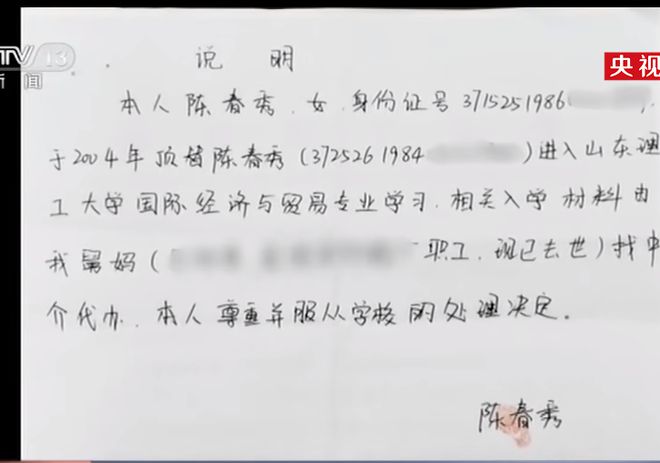 TV 13
新闻
央视
说 明
本人陈春秀,女,身份证号3715251986
于2004年顶替陈春秀(3725261984 )进入山东理
工大学国际经济与贸易专业学习.相关入学材料由
我舅妈( 职工,现已去世)找中
介代办.本人尊重并服从学校的处理决定。
陈春秀